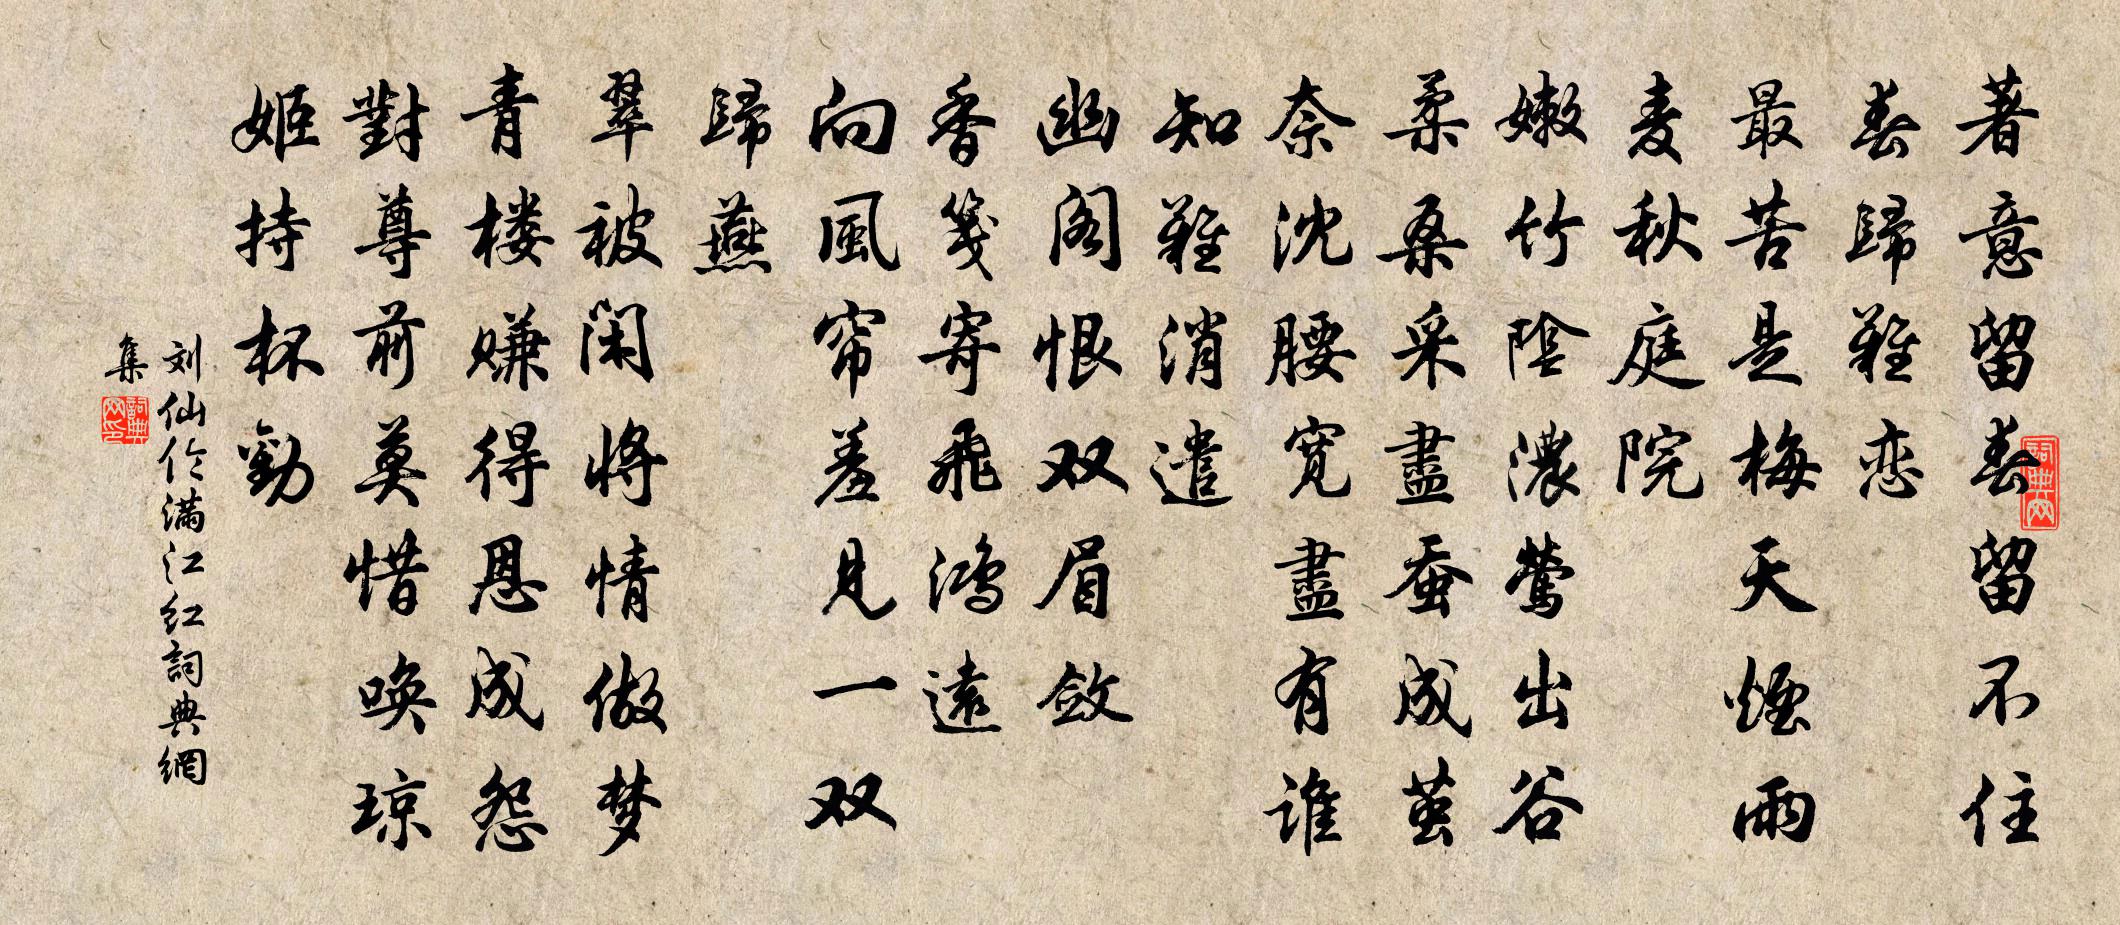 著意留春留不住
春歸難恋
最苦是梅天煙雨
麦秋庭院
嫩竹陰濃鶯出谷
柔桑采盡蚕成茧
奈沈腰宽盡有谁
知難消遣
幽阁恨双眉敛
香笺寄飛鸿遠
向風帘羞見一双
歸燕
翠被闲将情做梦
青楼嫌得恩成怨
對尊前莫惜唤琼
姬持杯勸
刘仙伦满江红詞典網
集
詞典网
詞典网印